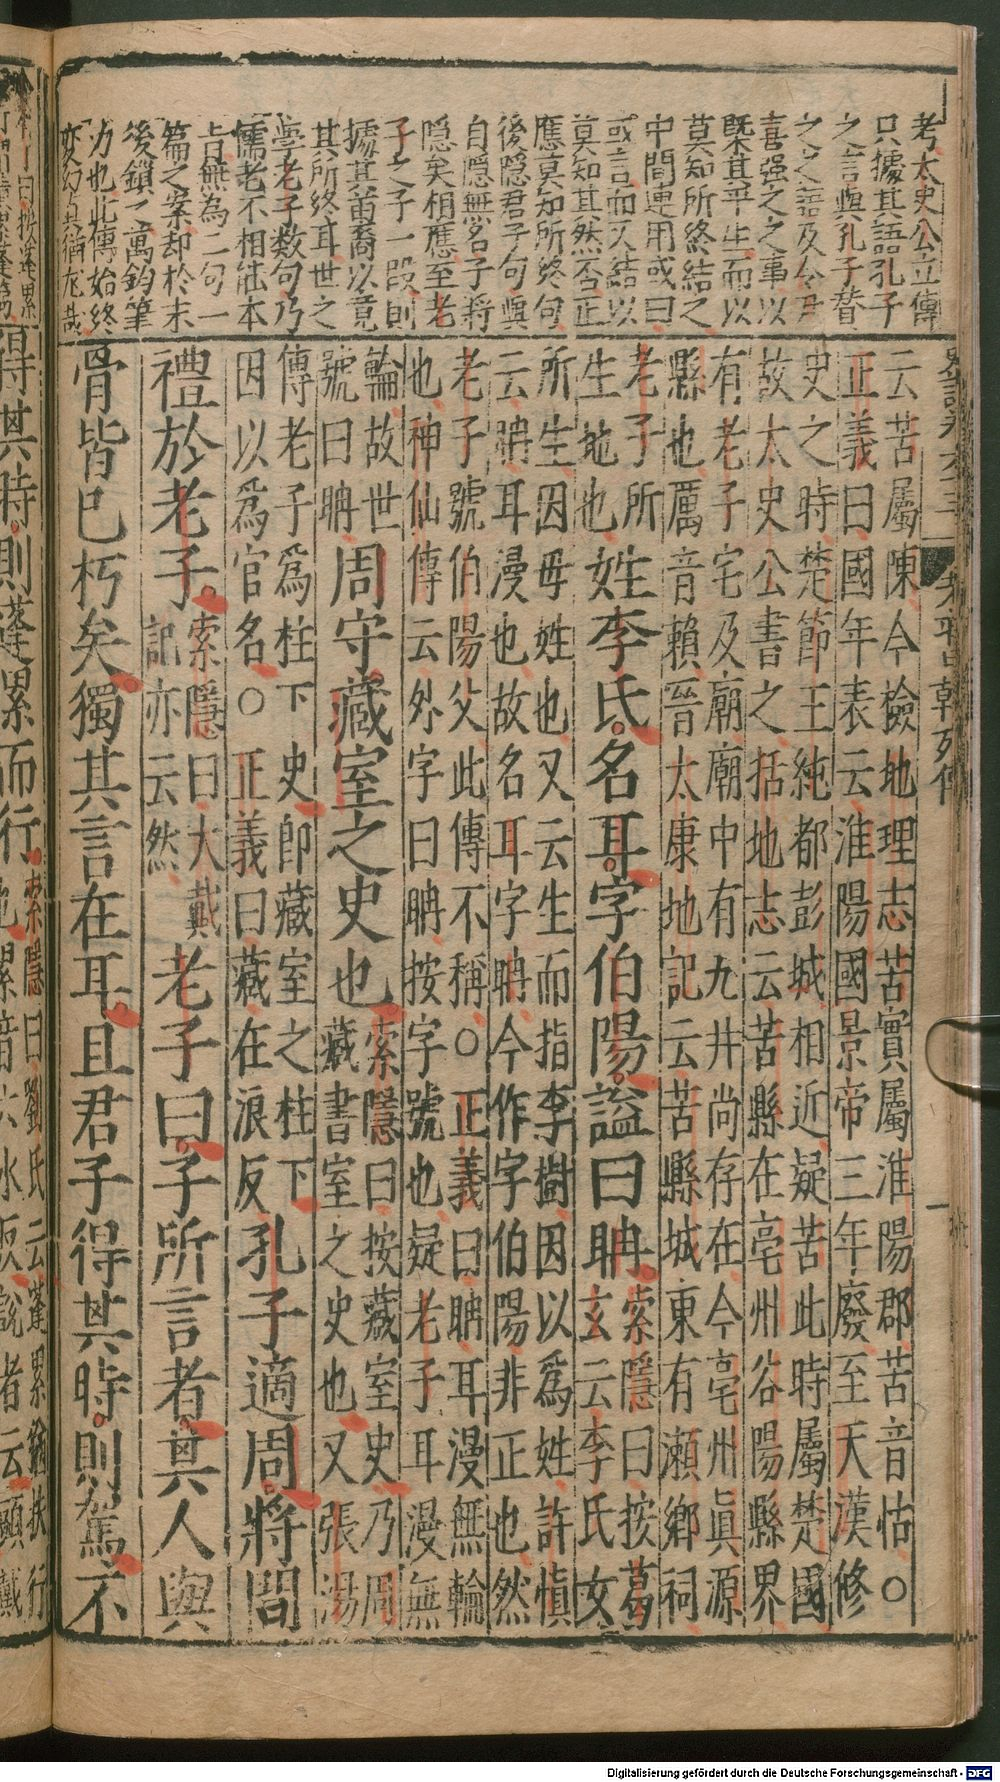 考太史公立傳
只據其語孔子
之言與孔子替
之之語及令尹
喜强之之事以
槩其平生而以
莫知所終結之
中間連用或曰
或言而又結以
莫知其然否正
應莫知所終句
後隱君子句與
自隱無名子將
隠矣相應至老
子之子一段則
據其苗裔以竟
其所終耳世之
學老子數句乃
儒老不相能本
旨無為二句一
篇之案却於末
後鎖之萬鈞筆
力也此傳始終
变幻真猶龙哉
云苦屬陳今檢地理志苦實屬淮陽郡苦音怙○
正義曰國年表云淮陽國景帝三年廢至天漢修
史之時楚節王純都彭城相近疑苦此時屬楚國
故太史公書之括地志云苦縣在亳州谷陽縣界
有老子宅及廟廟中有九井尚存在今亳州眞源
縣也厲音賴晉太康地記云苦縣城東有瀬鄉祠
老子所生地也姓李氏名耳字伯陽謚曰聃索隱曰按葛玄云李氏女
所生因母姓也又云生而指李樹因以爲姓許慎
云聃耳漫也故名耳字聃今作字伯陽非正也然
老子號伯陽父此傳不稱○正義曰聃耳漫無輪
也神仙傳云外字曰聃按字號也疑老子耳漫無
輪故世號曰聃周守藏室之史也索隱曰按藏室史乃周藏書室之史也又張湯
傳老子爲柱下史即藏室之柱下因以爲官名○正義曰藏在浪反孔子適周將問
禮於老子索隱曰大戴記亦云然老子曰子所言者其人與
骨皆已朽矣獨其言在耳且君子得其時則駕不
得其時則蓬累而行索隱曰劉氏云蓬累猶扶行也累音六水反說者云頭戴
Digitalisierung gefördert durch die Deutsche Forschungsgemeinschaft - DFG